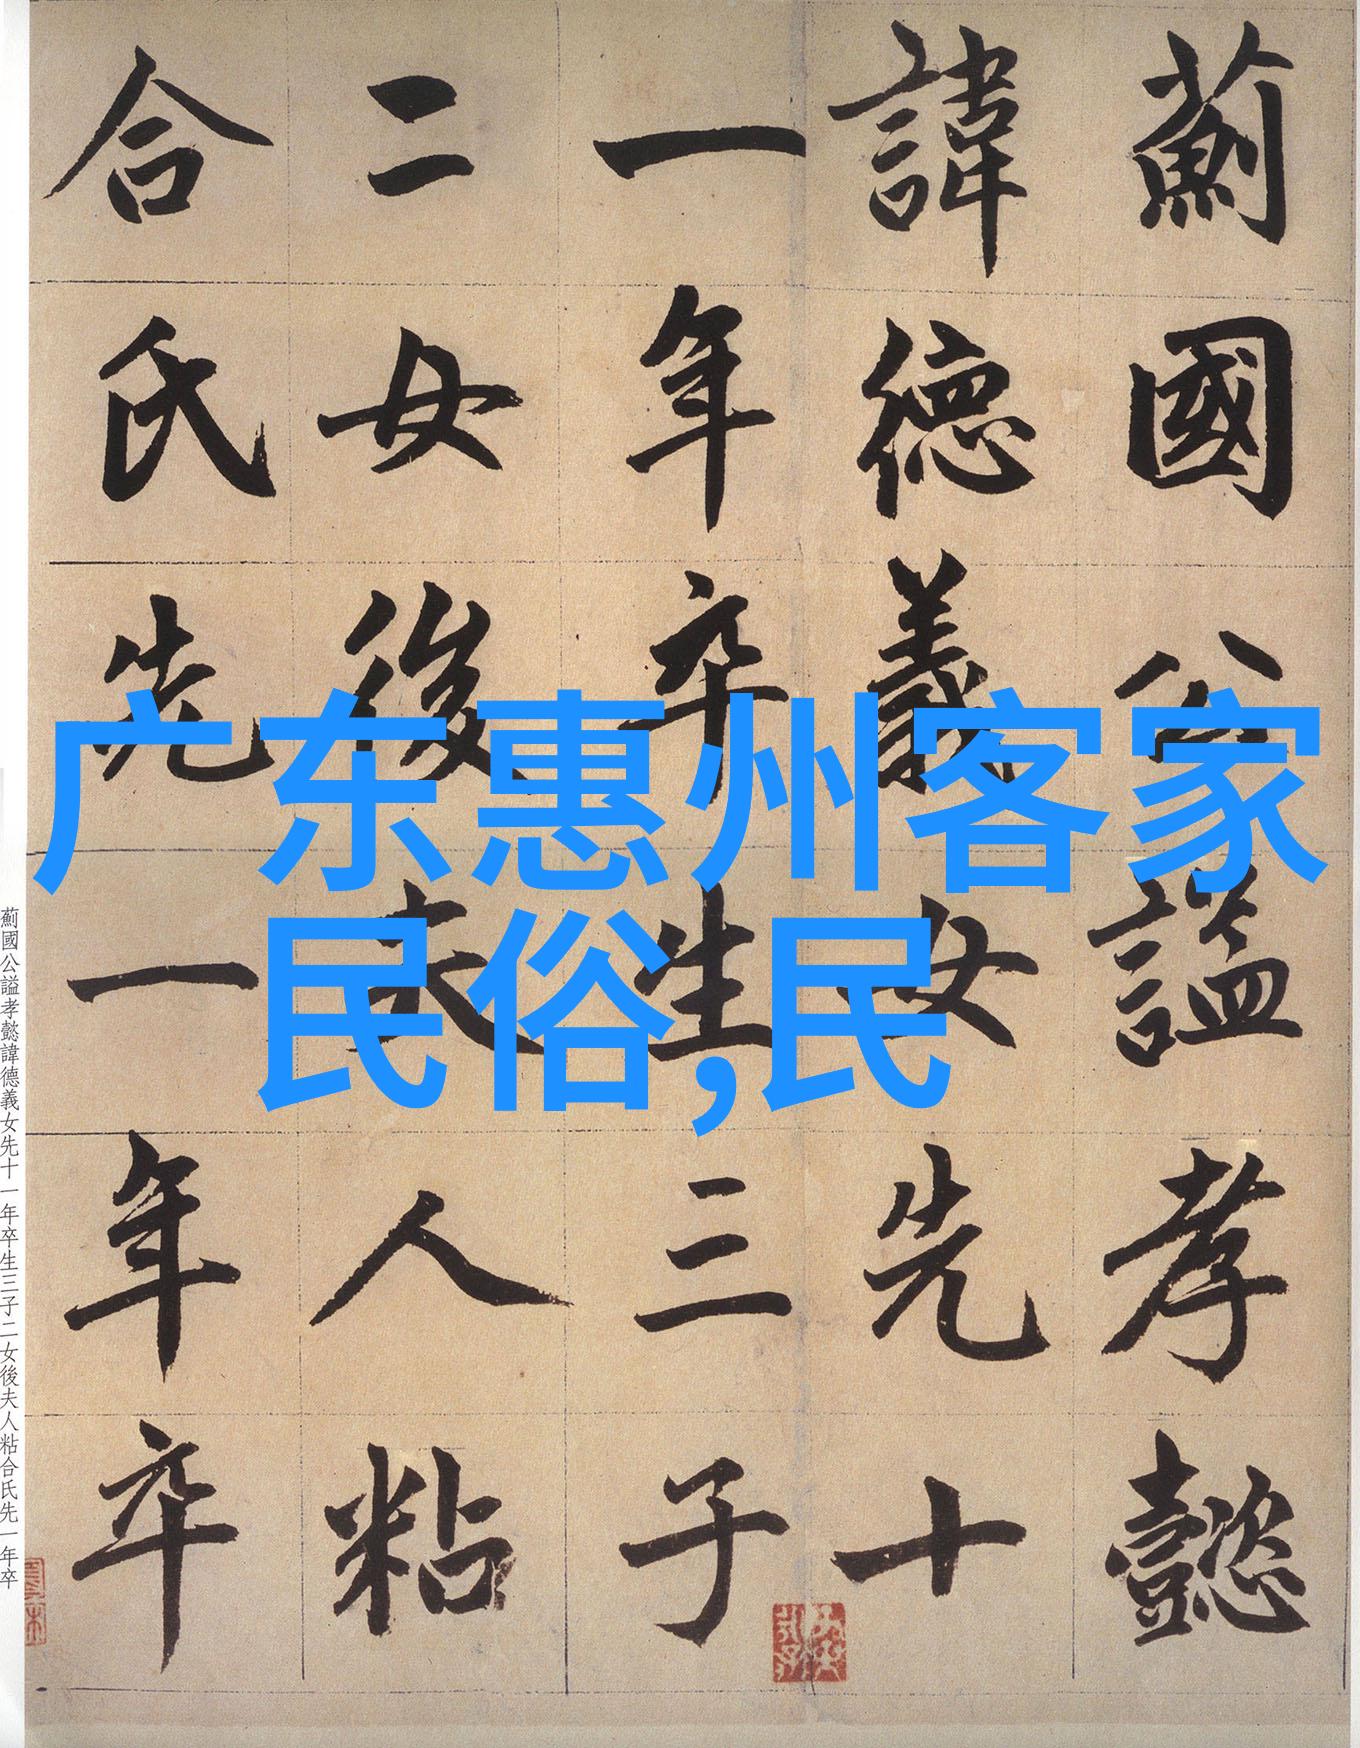 薊國公謚孝懿
諱德義女先十
一年卒生三子
二女後夫人粘
合氏先一年卒
广东惠州客家
民俗,民
薊國公謚孝懿諱德義女先十一年卒生三子二女後夫人粘合氏先一年卒